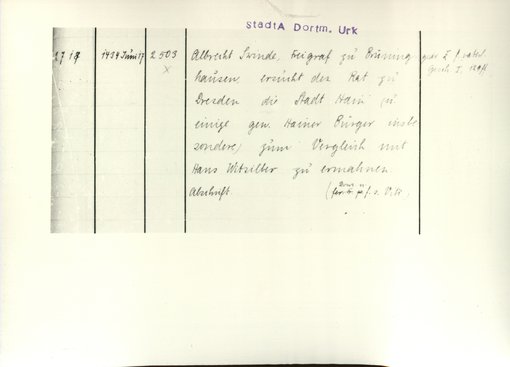 StadtA Dortm. Urk
1434 Juni 17 2 503 Albrecht Swinde, Freigraf zu Brüning
hausen, ersucht den Rat zu
Dresden die Stadt Hain (u
einige gen. Hainer Bürger insbe
sondere) zum Vergleich mit
Hans zu ermahnen
Abschrift.